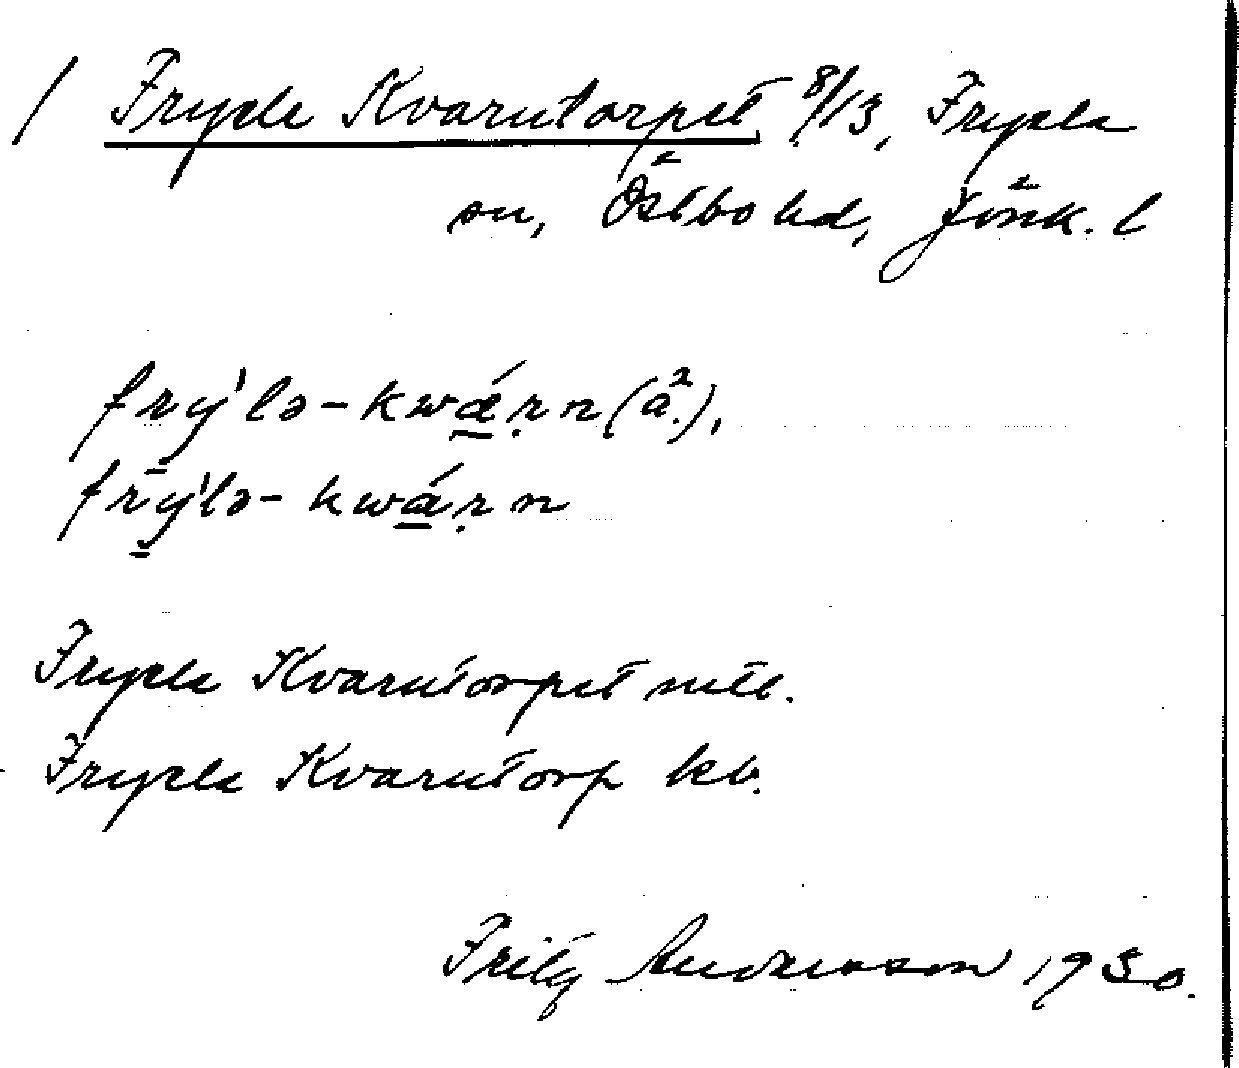 / Fryele Kvarntorpet 8/13, Fryele
sn, Östbo hd, Jönk. l
frý'lə-kwǽṛn (a²),
frý'lə-kwáṛn
Fryele Kvarntorpet mtl.
Fryele Kvarntorp kb.
Fritz Andersson 1930.